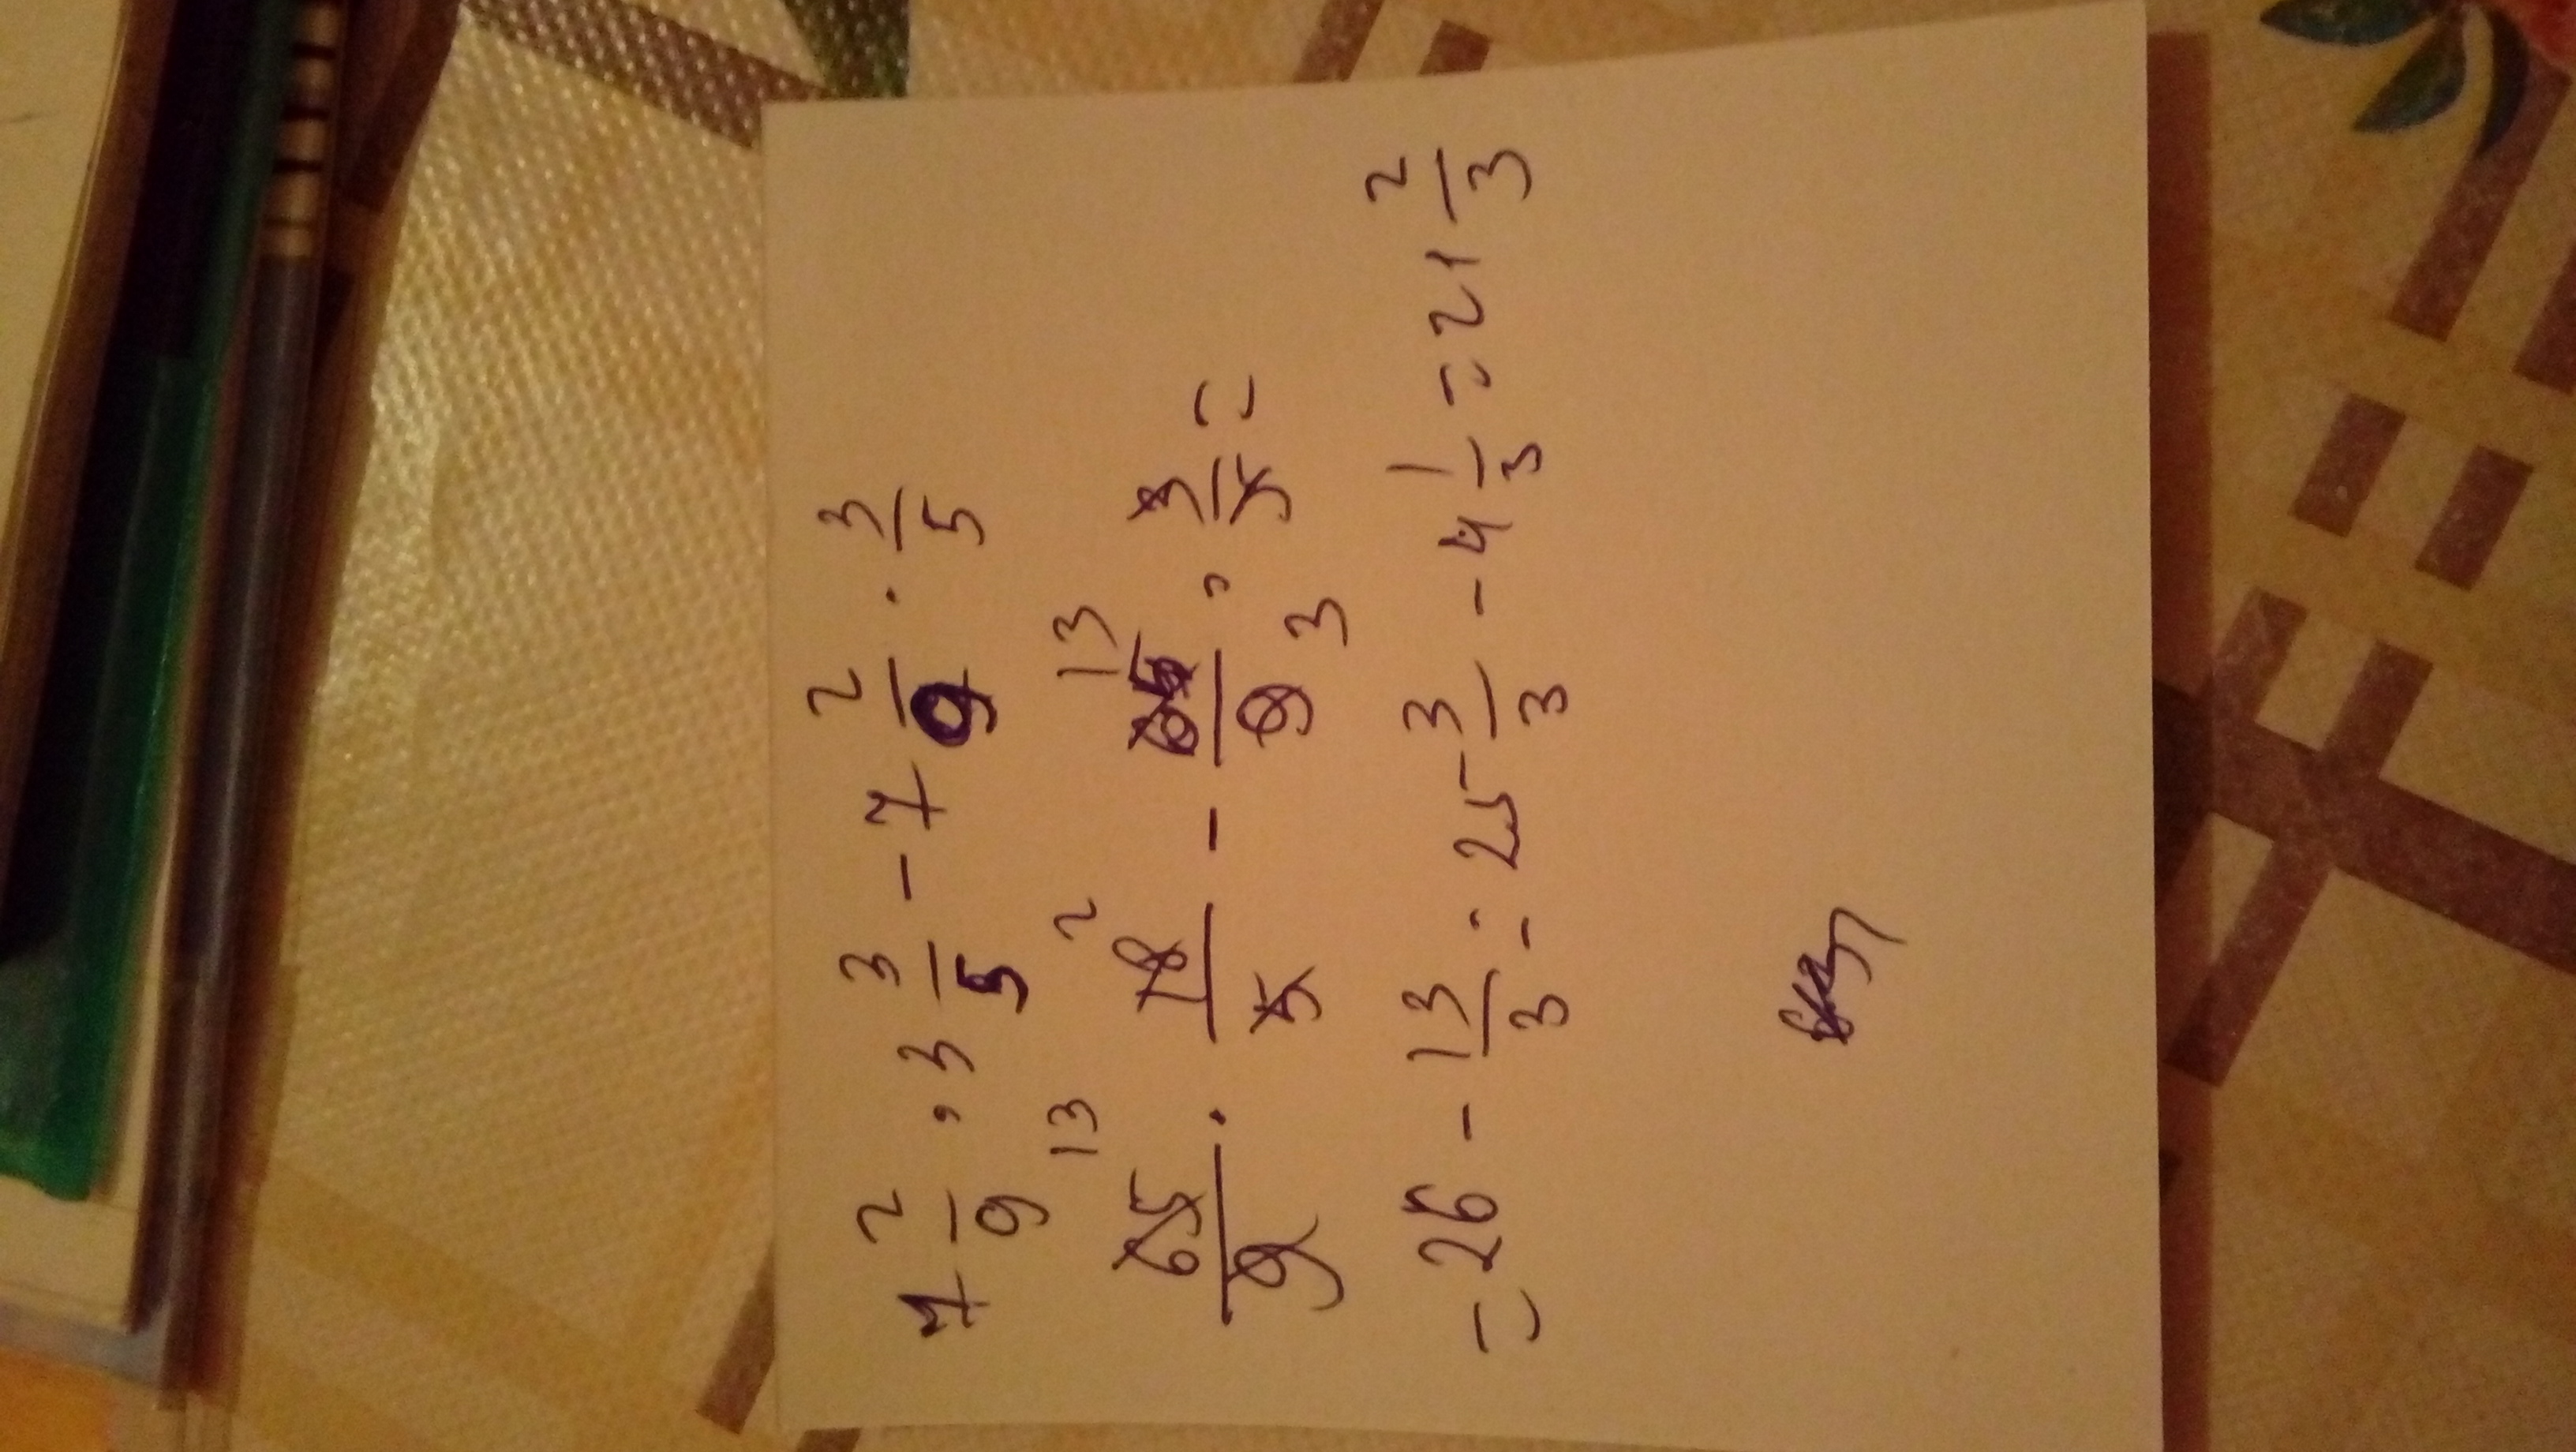 7 2/9 · 3 3/5 - 7 2/9 · 3/5
13 2 13
65/9 · 18/5 - 65/9 · 3/5 =
3
= 26 - 13/3 = 25 3/3 - 4 1/3 = 21 2/3